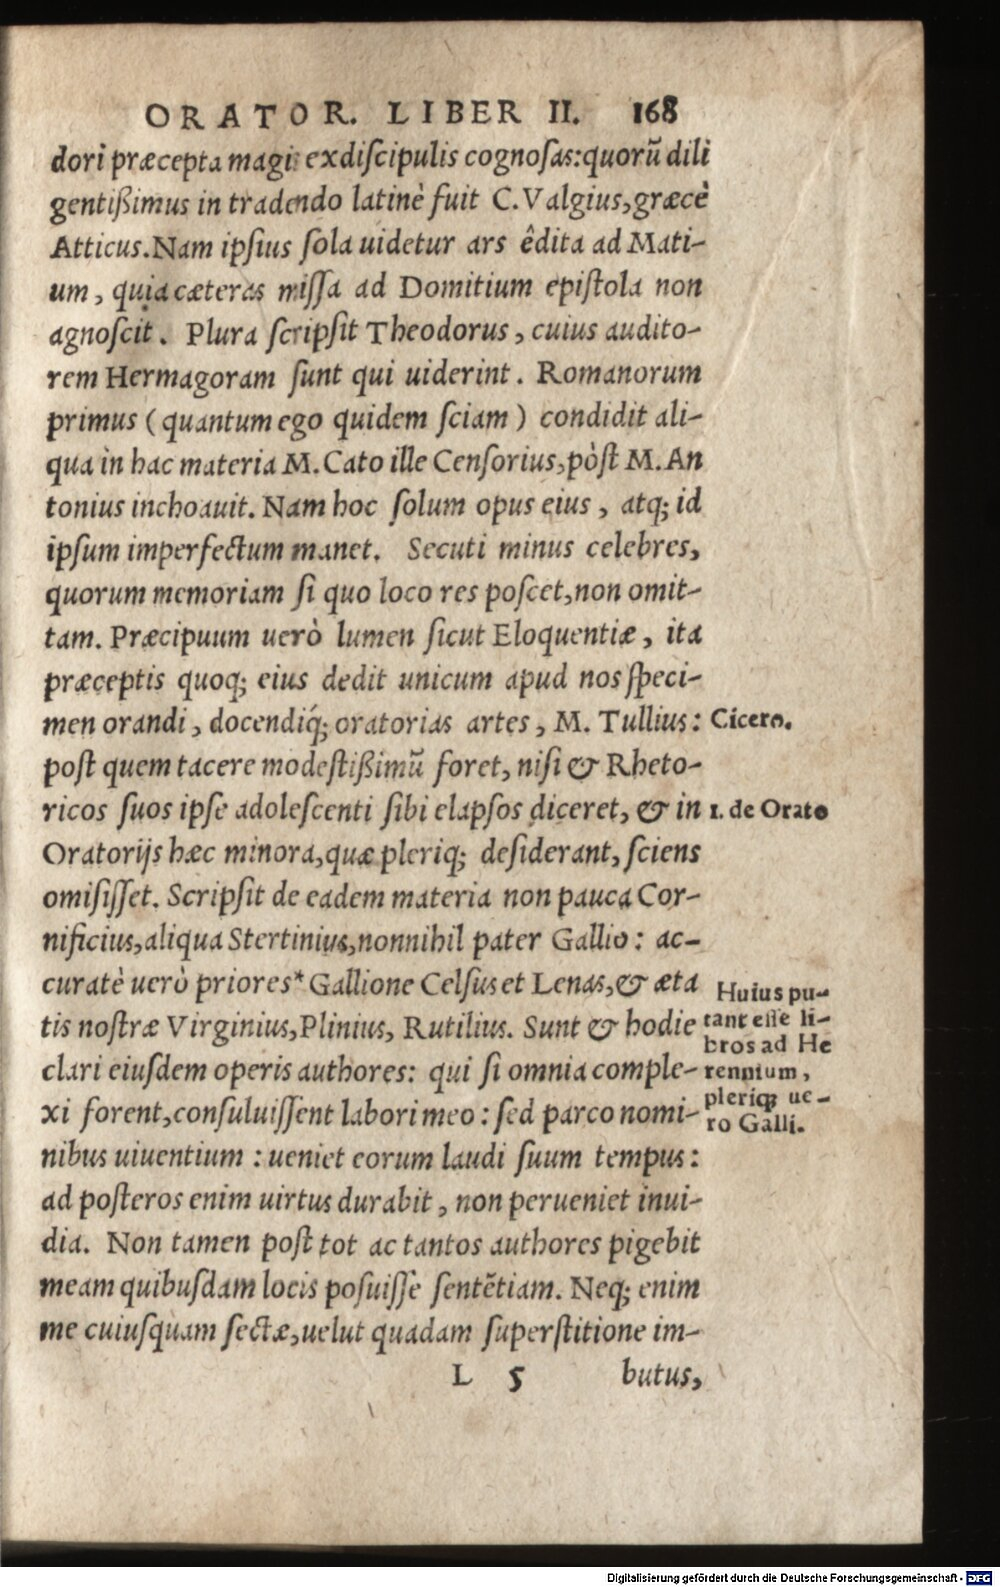 ORATOR. LIBER II. 168
dori præcepta magis ex discipulis cognosas: quorũ dili
gentißimus in tradendo latinè fuit C. Valgius, græcè
Atticus. Nam ipsius sola uidetur ars êdita ad Mati-
um, quia cæteras missa ad Domitium epistola non
agnoscit. Plura scripsit Theodorus, cuius audito-
rem Hermagoram sunt qui uiderint. Romanorum
primus (quantum ego quidem sciam) condidit ali-
qua in hac materia M. Cato ille Censorius, pòst M. An
tonius inchoauit. Nam hoc solum opus eius, atq; id
ipsum imperfectum manet. Secuti minus celebres,
quorum memoriam si quo loco res poscet, non omit-
tam. Præcipuum uerò lumen sicut Eloquentiæ, ita
præceptis quoq; eius dedit unicum apud nos speci-
men orandi, docendiq́; oratorias artes, M. Tullius: Cicero.
post quem tacere modestißimũ foret, nisi & Rheto-
ricos suos ipse adolescenti sibi elapsos diceret, & in 1. de Orato
Oratorijs hæc minora, quæ pleriq; desiderant, sciens
omisisset. Scripsit de eadem materia non pauca Cor-
nificius, aliqua Stertinius, nonnihil pater Gallio: ac-
curatè uerò priores* Gallione Celsus et Lenas, & æta
tis nostræ Virginius, Plinius, Rutilius. Sunt & hodie
clari eiusdem operis authores: qui si omnia comple-
xi forent, consuluissent labori meo: sed parco nomi-
nibus uiuentium: ueniet eorum laudi suum tempus:
ad posteros enim uirtus durabit, non perueniet inui-
dia. Non tamen post tot ac tantos authores pigebit
meam quibusdam locis posuisse sentẽtiam. Neq; enim
me cuiusquam sectæ, uelut quadam superstitione im-
L 5 butus,
Huius pu-
tant esse li-
bros ad He
rennium,
pleriq; ue-
ro Galli.
Digitalisierung gefördert durch die Deutsche Forschungsgemeinschaft - DFG